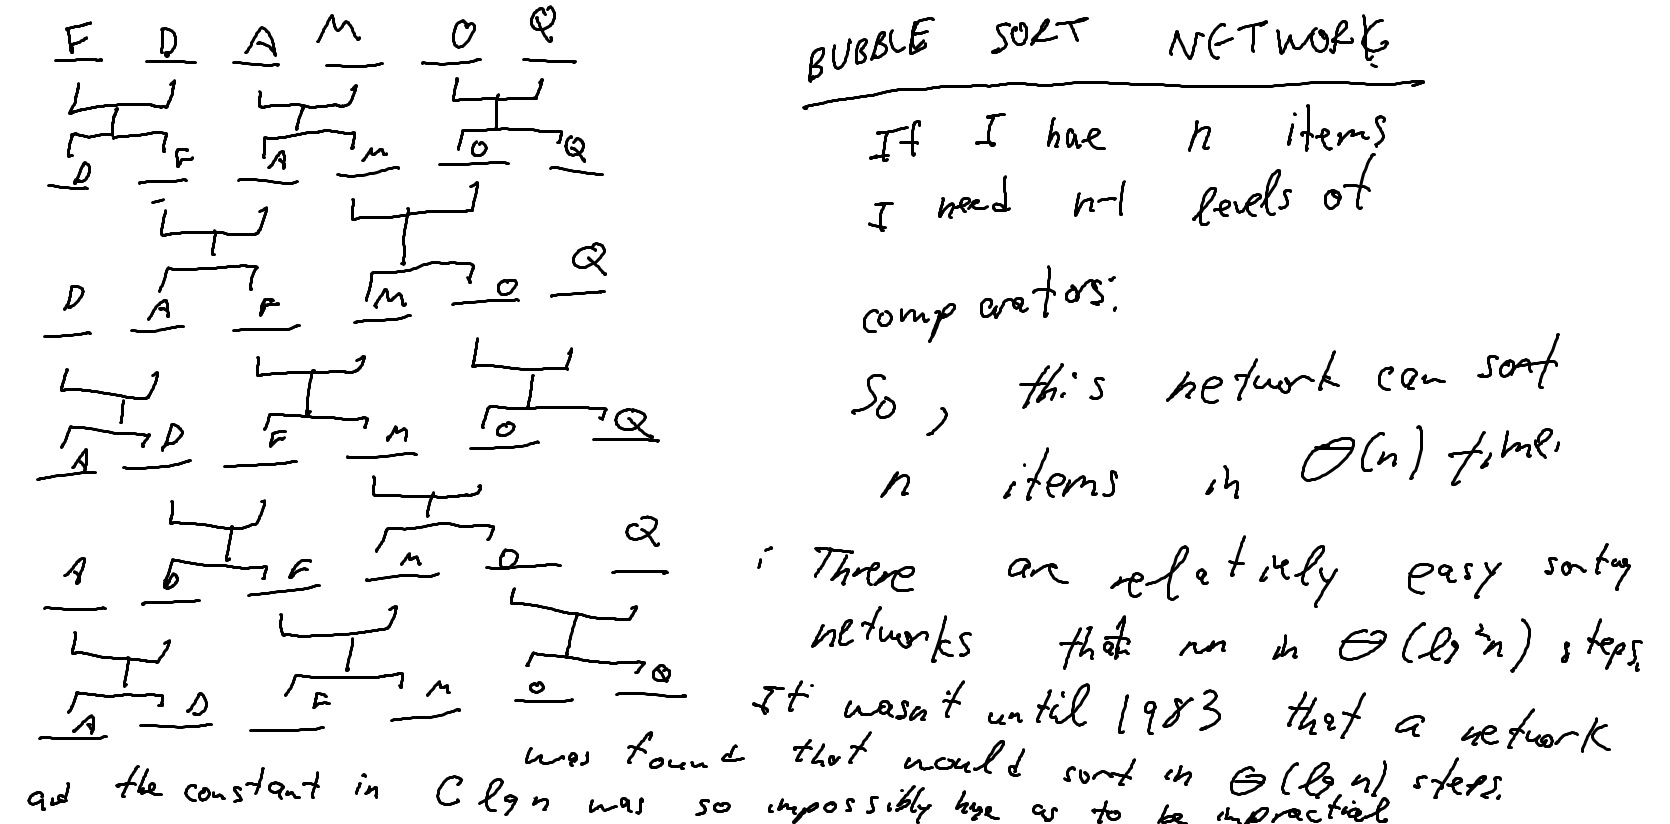 F D A M O Q
D F A M O Q
D A F M O Q
A D F M O Q
A D F M O Q
A D F M O Q
BUBBLE SORT NETWORK
If I hae n items
I need n-1 levels of
comparators:
So, this network can sort
n items in Θ(n) time.
Threre are relatively easy sorting
networks that run in Θ(lg²n) steps.
It wasn't until 1983 that a network
was found that would sort in Θ(lg n) steps.
and the constant in C lg n was so impossibly huge as to be impractial